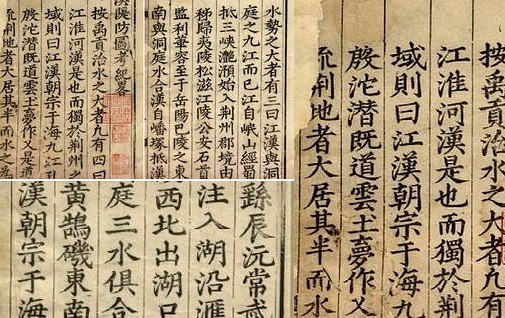 水勢之大者有三曰江漢與洞
庭之九江而巳江自岷山經蜀
抵三峽灩澦始入荆州郡境由
秭歸夷陵松滋江陵公安石首
監利華容至于岳陽巴陵之東
南與洞庭水合漢自嶓塚抵漢
漢隄防圖考紀畧
按禹貢治水之大者九有四曰
江淮河漢是也而獨於荆州之
域則曰江漢朝宗于海九江孔
殷沱潛既道雲土夢作乂是
流荆地者大居其半而水之
按禹貢治水之大者九有
江淮河漢是也而獨於荆
域則曰江漢朝宗于海九
殷沱潛既道雲土夢作乂
流荆地者大居其半而水
繇辰沅常武
注入湖沿滙
西北出湖口
庭三水俱合
黄鵠磯東南
漢朝宗于海